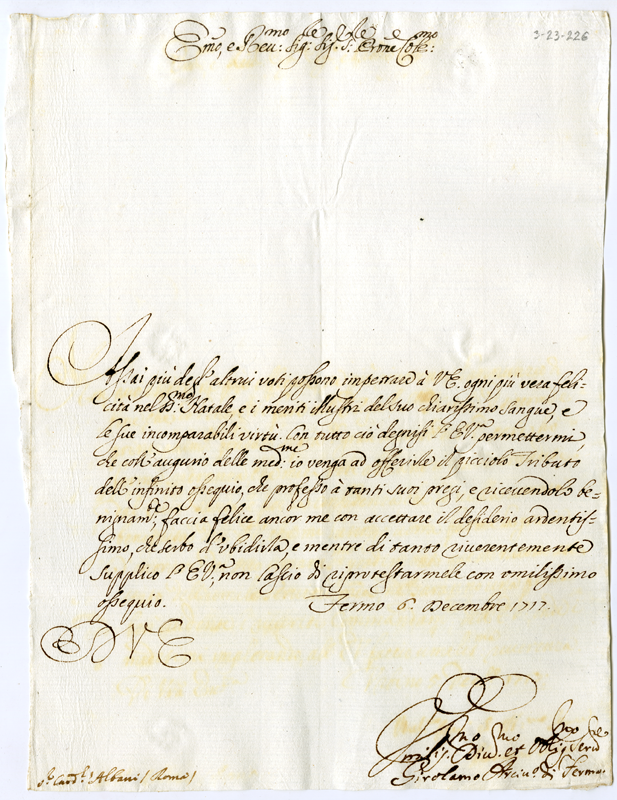 3-23-226
Emo, e Reumo: Sigre: Sigre: Prone Colmo:
Assai più degl'altrui voti possono impetrare à V.E. ogni più vera feli-
cità nel Smo: Natale, e i meriti illustri del suo chiarissimo sangue, e
le sue incomparabili virtù. Con tutto ciò degnisi l'E.V.ra permettermi,
che coll'augurio delle medme: io venga ad offerirle il picciolo Tributo
dell'infinito ossequio, che professo à tanti suoi pregi, e ricevendolo be-
nignamte: faccia felice ancor me con accettare il desiderio ardentis-
simo, che serbo d'ubidirla, e mentre di tanto riverentemente
supplico l'E.V.ra, non lascio di riprotestarmele con umilissimo
ossequio. Fermo 6. Decembre 1717.
D V E
Girolamo Arciuo: di Fermo
Sr. Cardl: Albani / Roma /